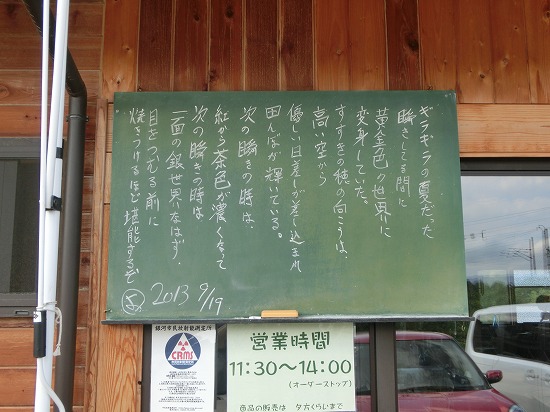 ギラギラの夏だった
瞬きしてる間に
黄金色の世界に
変身していた。
すすきの穂の向こうは、
高い空から
優しい日差しが差し込まれ
田んぼが輝いている。
次の瞬きの時は、
紅から茶色が濃くなって
次の瞬きの時は
一面の銀世界なはず。
目をつむる前に
焼きつけるほど堪能するぞ
2013 9/19
銀河市民放射能測定所
CRMS
営業時間
11:30〜14:00
(オーダーストップ)
商品の販売は 夕方くらいまで